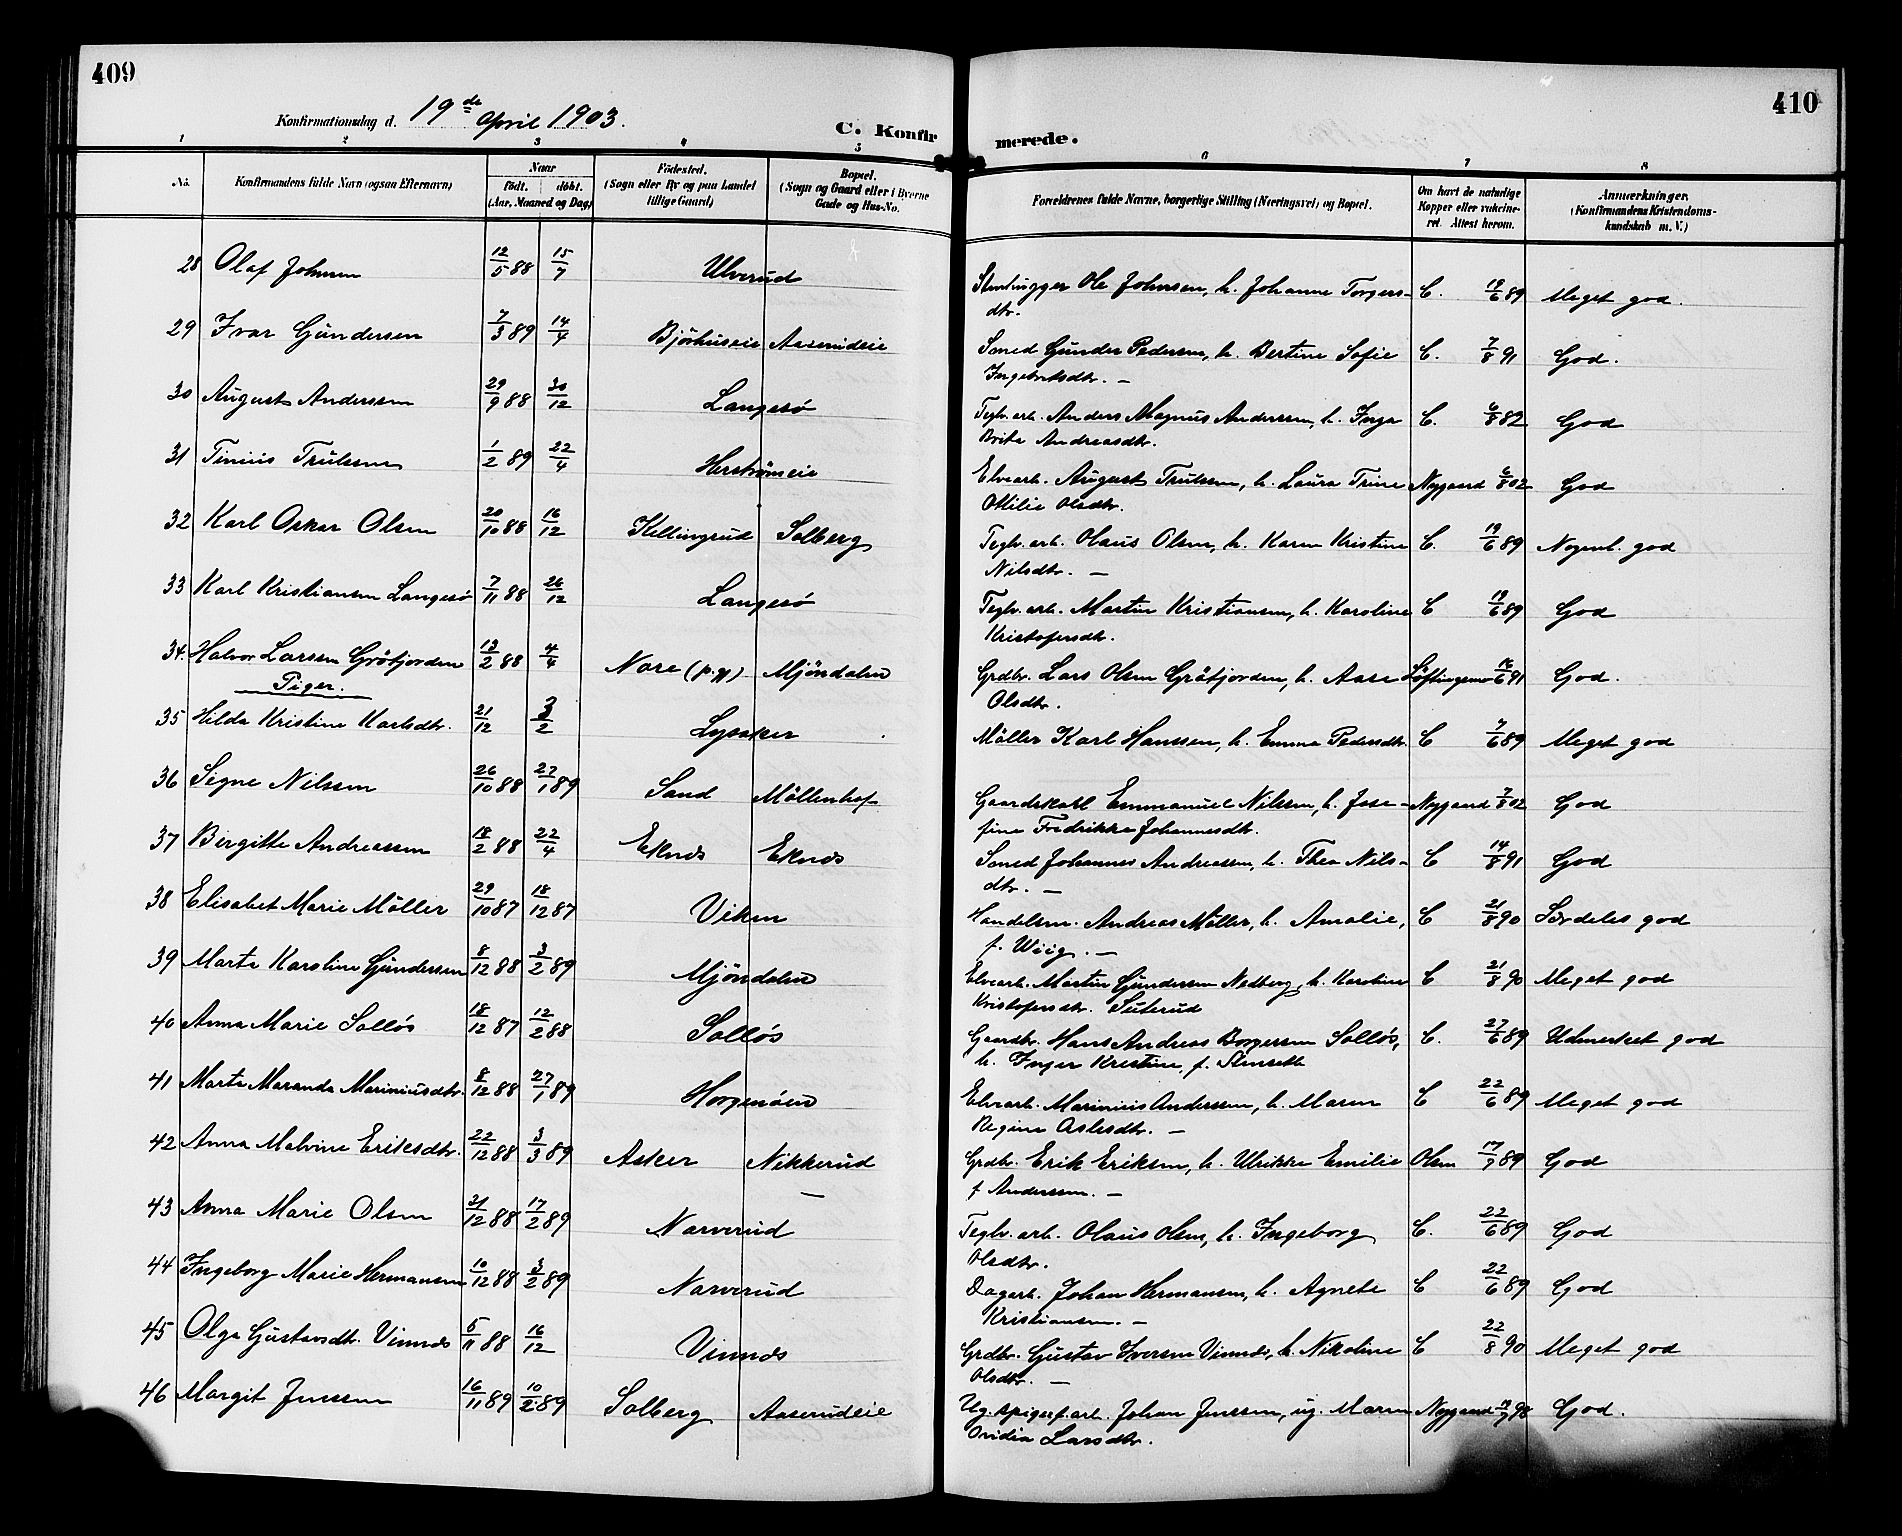 409
410
Konfirmationsdag d. 19de April 1903.
C. Konfir merede.
1 2 3 4 5 6 7 8
No.
Konfirmandens fulde Navn (ogsaa Efternavn)
Naar
födt. döbt.
(Aar, Maaned og Dag)
Födested.
(Sogn eller By og paa Landet
tillige Gaard)
Bopæl.
(Sogn og Gaard eller i Byerne
Gade og Hus-No.
Forældrenes fulde Navne, borgerlige Stilling (Næringsvei) og Bopæl.
Om havt de naturlige
Kopper eller vakcine-
ret. Attest herom.
Anmærkninger.
(Konfirmandens Kristendoms-
kundskab m. V.)
28 Olaf Johnsen 12/5 88 15/7 Ulverud Stenhugger Ole Johnsen, h. Johanne Torgers- C. 19/6 89 Meget god.
dtr.
29 Ivar Gundersen 7/3 89 14/4 Bjørhuseie Aaserudeie Smed Gunder Pedersen, h. Bertine Sofie C. 7/8 91 God.
Ingebretsdtr. —
30 August Anderssen 29/9 88 30/12 Langesö Teglv. arb. Anders Magnus Anderssen, h. Inga C. God
Brita Andreasdtr.
31 Tinius Trulssen 1/2 89 22/4 Herstrømeie Elvearb. August Trulssen, h. Laura Trine Nygaard 6/8 02 God
Otilie Olsdtr.
32 Karl Oskar Olsen 20/10 88 16/12 Killingrud Solberg Teglv. arb. Olaus Olsen, h. Karen Kristine C. 19/6 89 Nogenl. god
Nilsdtr. —
33 Karl Kristiansen Langesö 7/11 88 26/12 Langesö Teglv. arb. Martin Kristiansen, h. Karoline C 19/6 89 God
Kristofersdtr.
34. Halvor Larssen Gröfjorden 13/2 88 4/4 Nore (p.gj) Mjöndalen Grdbr. Lars Olsen Gröfjorden, h. Aase Löftingsmo 16/6 91 God.
Piger. Olsdtr.
35 Hilda Kristine Karlsdtr. 21/12 3/2 Lysaker Möller Karl Hanssen, h. Emma Pedersdtr. C 7/6 89 Meget god
36 Signe Nilssen 26/10 88 27/1 89 Sand Möllenhof Gaardskarl Emmanuel Nilssen, h. Jose- Nygaard 7/8 02 God
fine Fredrikke Johannesdtr.
37 Birgitte Andreassen 18/2 88 22/4 Eknes Eknes Smed Johannes Andreassen, h. Thea Nils- C 14/8 91 God
dtr. —
38 Elisabet Marie Möller 29/10 87 18/12 87 Viken Handelsm. Andreas Möller, h. Amalie, C 21/8 90 Særdeles god
f. Wiig. —
39 Marta Karoline Gundersen 8/12 88 3/2 89 Mjöndalen Elvearb. Martin Gundersen Nedberg, h. Karoline C 21/8 90 Meget god
Kristofersdtr. Suterud
40 Anna Marie Solløs 18/12 87 12/2 88 Solløs Gaardbr. Hans Andreas Borgersen Solløs, C. 27/6 89 Udmerket god
h. Inger Kristine, f. Stenseth
41 Marta Maranda Mariniusdtr. 8/12 88 27/1 89 Horgenöen Elvearb. Marinius Anderssen, h. Maren C 22/6 89 Meget god
Regine Aslesdtr. —
42 Anna Malvine Eriksdtr. 22/12 88 3/3 89 Asker Nikkerud Grdbr. Erik Eriksen, h. Ulrikke Emilie Olsen 17/9 89 God
— f Anderssen. —
43 Anna Marie Olsen 31/12 88 17/2 89 Narverud Teglv. arb. Olaus Olsen, h. Ingeborg C. 22/6 89 God
Olsdtr.
44 Ingeborg Marie Hermansen 10/12 88 3/2 89 Narverud Dagarb. Johan Hermansen, h. Agnete C 22/6 89 God
Kristiansen. —
45 Olga Gustavsdtr. Vinnes 5/11 88 16/12 Vinnes Grdbr. Gustav Iversen Vinnes, h. Nikoline C 22/8 90 Meget god
Olsdtr. —
46 Margit Jenssen 16/11 89 10/2 89 Solberg Aaserudeie Ug. spigerf. arb. Johan Jenssen, ug. Maren Nygaard God.
Ovidia Larsdtr.